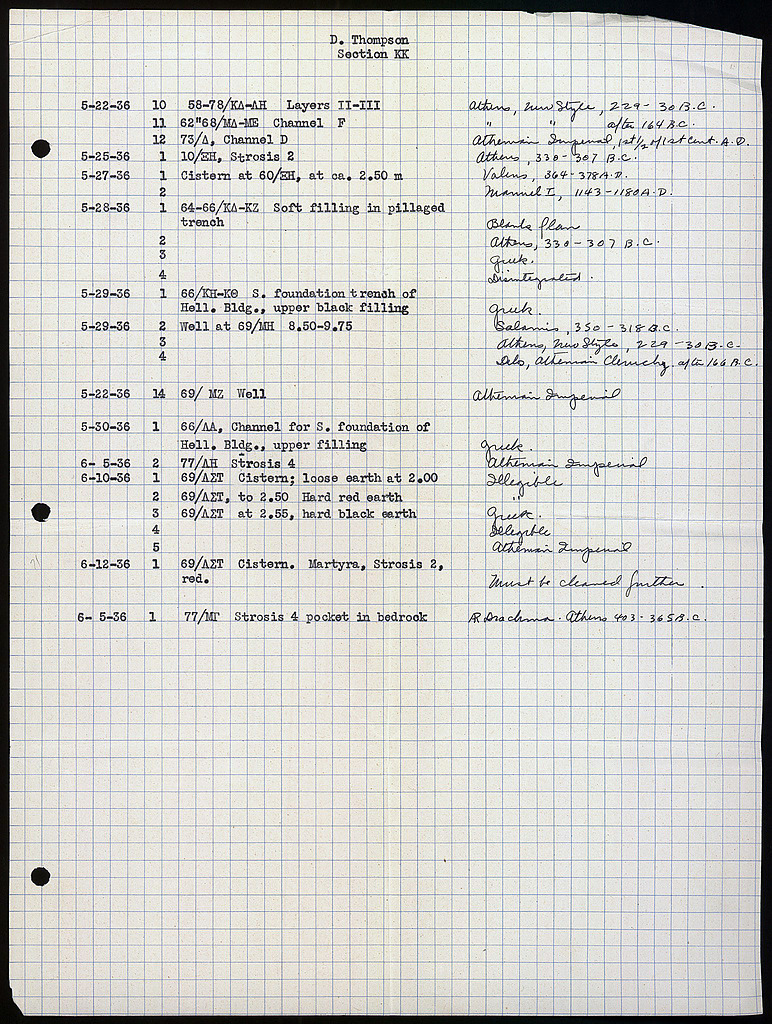 D. Thompson
Section KK
5-22-36 10 58-78/ΚΔ-ΛΗ Layers II-III Athens, New Style, 229-30 B.C.
11 62"68/ΜΔ-ΜΕ Channel F " " after 164 B.C.
12 73/Δ, Channel D Athenian Imperial, 1st 1/2 of 1st Cent. A.D.
5-25-36 1 10/ΞΗ, Strosis 2 Athens, 330-307 B.C.
5-27-36 1 Cistern at 60/ΞΗ, at ca. 2.50 m Valens, 364-378 A.D.
2 Manuel I, 1143-1180 A.D.
5-28-36 1 64-66/ΚΔ-ΚΖ Soft filling in pillaged
trench Blank flan
2 Athens, 330-307 B.C.
3 Greek.
4 Disintegrated.
5-29-36 1 66/ΚΗ-ΚΘ S. foundation trench of
Hell. Bldg., upper black filling Greek.
5-29-36 2 Well at 69/ΜΗ 8.50-9.75 Salamis, 350-318 B.C.
3 Athens, New Style, 229-30 B.C.
4 Delos, Athenian Cleruchy, after 166 B.C.
5-22-36 14 69/ ΜΖ Well Athenian Imperial
5-30-36 1 66/ΛΑ, Channel for S. foundation of
Hell. Bldg., upper filling Greek.
6- 5-36 2 77/ΛΗ Strosis 4 Athenian Imperial
6-10-36 1 69/ΛΣΤ Cistern; loose earth at 2.00 Illegible
2 69/ΛΣΤ, to 2.50 Hard red earth "
3 69/ΛΣΤ at 2.55, hard black earth Greek.
4 Illegible
5 Athenian Imperial
6-12-36 1 69/ΛΣΤ Cistern. Martyra, Strosis 2,
red. Must be cleaned further.
6- 5-36 1 77/ΜΓ Strosis 4 pocket in bedrock AR Drachma. Athens 403-365 B.C.